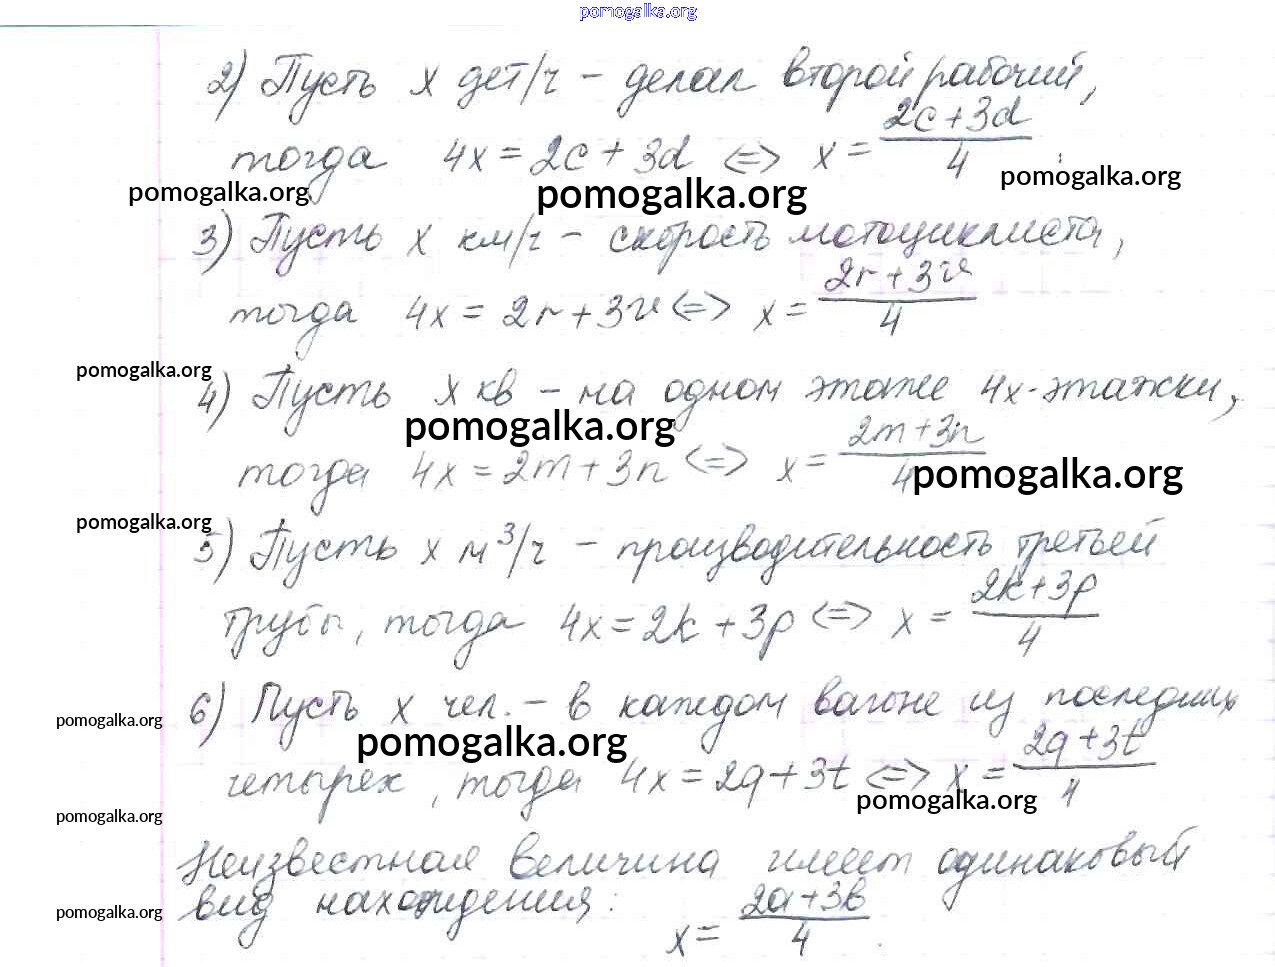 pomogalka.org
2) Пусть x дет/ч – делал второй рабочий,
тогда 4x = 2c + 3d <=> x = (2c + 3d)/4.
pomogalka.org pomogalka.org pomogalka.org
3) Пусть x км/ч – скорость мотоциклиста,
тогда 4x = 2r + 3v <=> x = (2r + 3v)/4
pomogalka.org
4) Пусть x кв – на одном этаже 4х-этажки,
pomogalka.org
тогда 4x = 2m + 3n <=> x = (2m + 3n)/4
pomogalka.org
pomogalka.org
5) Пусть x м³/ч – производительность третьей
трубы, тогда 4x = 2k + 3p <=> x = (2k + 3p)/4
6) Пусть x чел. – в каждом вагоне из последних
pomogalka.org
pomogalka.org
четырех, тогда 4x = 2q + 3t <=> x = (2q + 3t)/4
pomogalka.org
pomogalka.org
Неизвестная величина имеет одинаковый
вид нахождения:
pomogalka.org
x = (2a + 3b)/4.